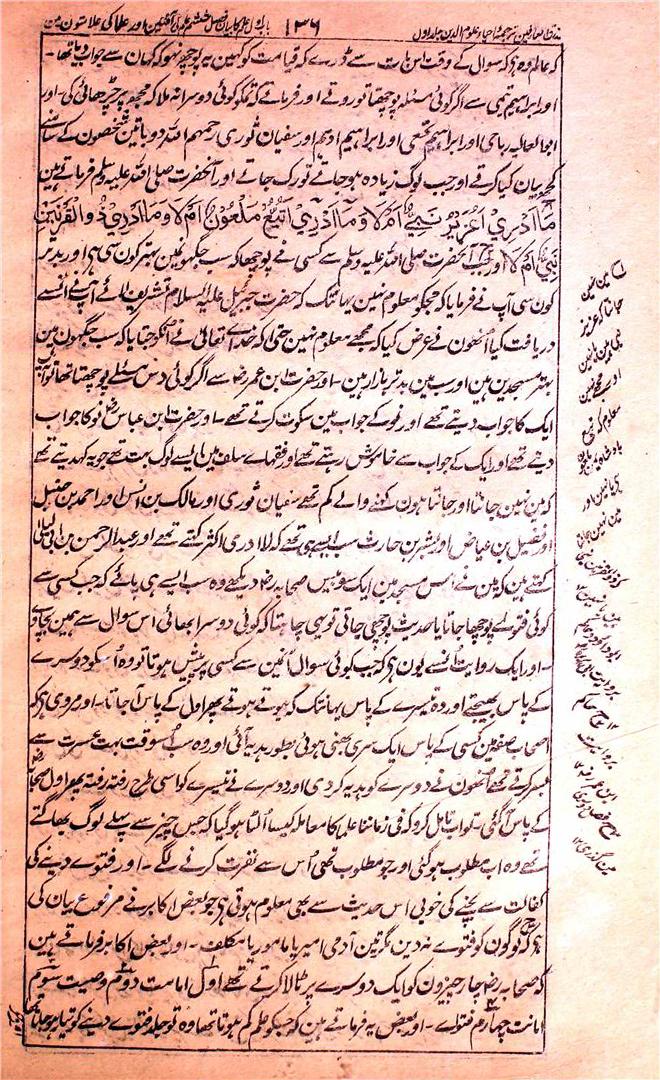 مذاق العارفین ترجمہ احیاء علوم الدین جلد اول
۱۳۶
باب اول علم کا بیان فصل ششم علم کی آفتین اور علما کی علامتون مین
کہ عالم وہ ہی کہ سوال کے وقت اس بات سے ڈرے کہ قیامت کو کہین یہ پوچھ نہو کہ کہان سے جواب دیا تھا ۔
اور ابراہیم تیمی سے اگر کوئی مسئلہ پوچھتا تو روتے اور فرماتے کہ تمکو کوئی دوسرا نہ ملا کہ مجھ پر چڑھائی کی ۔ اور
ابو العالیہ ریاحی اور ابراہیم نخعی اور ابراہیم ادہم اور سفیان ثوری رحمہم اللہ دو یا تین شخصون کے سامنے
کچھ بیان کیا کرتے اور جب لوگ زیادہ ہو جاتے تو رک جاتے اور آنحضرت صلی اللہ علیہ وسلم فرماتے ہین
مَا اَدْرِیْ اَعُزَیْرٌ نَبِیٌّ اَمْ لَا وَمَا اَدْرِیْ اَتُبَّعٌ مَلْعُوْنٌ اَمْ لَا وَمَا اَدْرِیْ ذُو الْقَرْنَیْنِ
نَبِیٌّ اَمْ لَا اور جب آنحضرت صلی اللہ علیہ وسلم سے کسی نے پوچھا کہ سب جگہونمین بہتر کون سی ہی اور بدتر
کون سی آپ نے فرمایا کہ مجکو معلوم نہین یہانتک کہ حضرت جبرئیل علیہ السلام تشریف لائے آپ نے اُنسے
دریافت کیا اُنھون نے عرض کیا کہ مجھے معلوم نہین حتی کہ خدا تعالی نے انکو بتایا کہ سب جگہون مین
بہتر مسجدین ہین اور سب مین بدتر بازار ہین ۔ اور حضرت ابن عمر رض سے اگر کوئی دس مسئلے پوچھتا تھا تو آپ
ایک کا جواب دیتے تھے اور نو کے جواب مین سکوت کرتے تھے ۔ اور حضرت ابن عباس رض نو کا جواب
دیتے تھے اور ایک کے جواب سے خاموش رہتے تھے اور فقہاے سلف مین ایسے لوگ بہت تھے جو یہ کہدیتے تھے
کہ مین نہین جانتا اور جانتا ہون کہنے والے کم تھے سفیان ثوری اور مالک بن انس اور احمد بن حنبل
اور فضیل بن عیاض اور بشر بن حارث سب ایسے ہی تھے کہ لا ادری اکثر کہتے تھے اور عبد الرحمن بن ابی لیلیٰ
کہتے ہین کہ مین نے اس مسجد مین ایک سو بیس صحابہ رض دیکھے وہ سب ایسے ہی پائے کہ جب کسی سے
کوئی فتوے پوچھا جاتا یا حدیث پوچھی جاتی تو یہی چاہتا کہ کوئی دوسرا بھائی اس سوال سے ہمین بچاوے
۔ اور ایک روایت اُنسے یون ہی کہ جب کوئی سوال اُنمین سے کسی پر پیش ہوتا تو وہ اُسکو دوسرے
کے پاس بھیجتے اور وہ تیسرے کے پاس یہانتک کہ ہوتے ہوتے پھر اول کے پاس آ جاتا ۔ اور مروی ہی کہ
اصحاب صفہ مین کسی کے پاس ایک سری بھنی ہوئی بطور ہدیہ آئی اور وہ سب اُسوقت بہت عسرت سے
بسر کرتے تھے اُنھون نے دوسرے کو ہدیہ کر دی اور دوسرے نے تیسرے کو اسی طرح رفتہ رفتہ پھر اول صحابی رض
کے پاس آ گئی ۔ تو اب تامل کرو کہ فی زماننا علما کا معاملہ کیسا اُلٹا ہو گیا کہ جس چیز سے پہلے لوگ بھاگتے
تھے وہ اب مطلوب ہو گئی اور جو مطلوب تھی اُس سے نفرت کرنے لگے ۔ اور فتوے دینے کی
کفالت سے بچنے کی خوبی اس حدیث سے بھی معلوم ہوتی ہی جو بعض اکابر نے مرفوع بیان کی
ہی کہ لوگون کو فتوے نہ دین مگر تین آدمی امیر یا مامور یا متکلف ۔ اور بعض اکابر فرماتے ہین
کہ صحابہ رض چار چیزون کو ایک دوسرے پر ٹالا کرتے تھے اول امامت دوم وصیت سوم
امانت چہارم فتوے ۔ اور بعض یہ فرماتے ہین کہ جسکو علم کم ہوتا تھا وہ تو جلد فتوے دینے کو تیار ہو جاتا تھا
مین نہین
جانتا کہ عزیز
نبی ہین یا نہین
اور مجھے نہین
معلوم کہ تبع